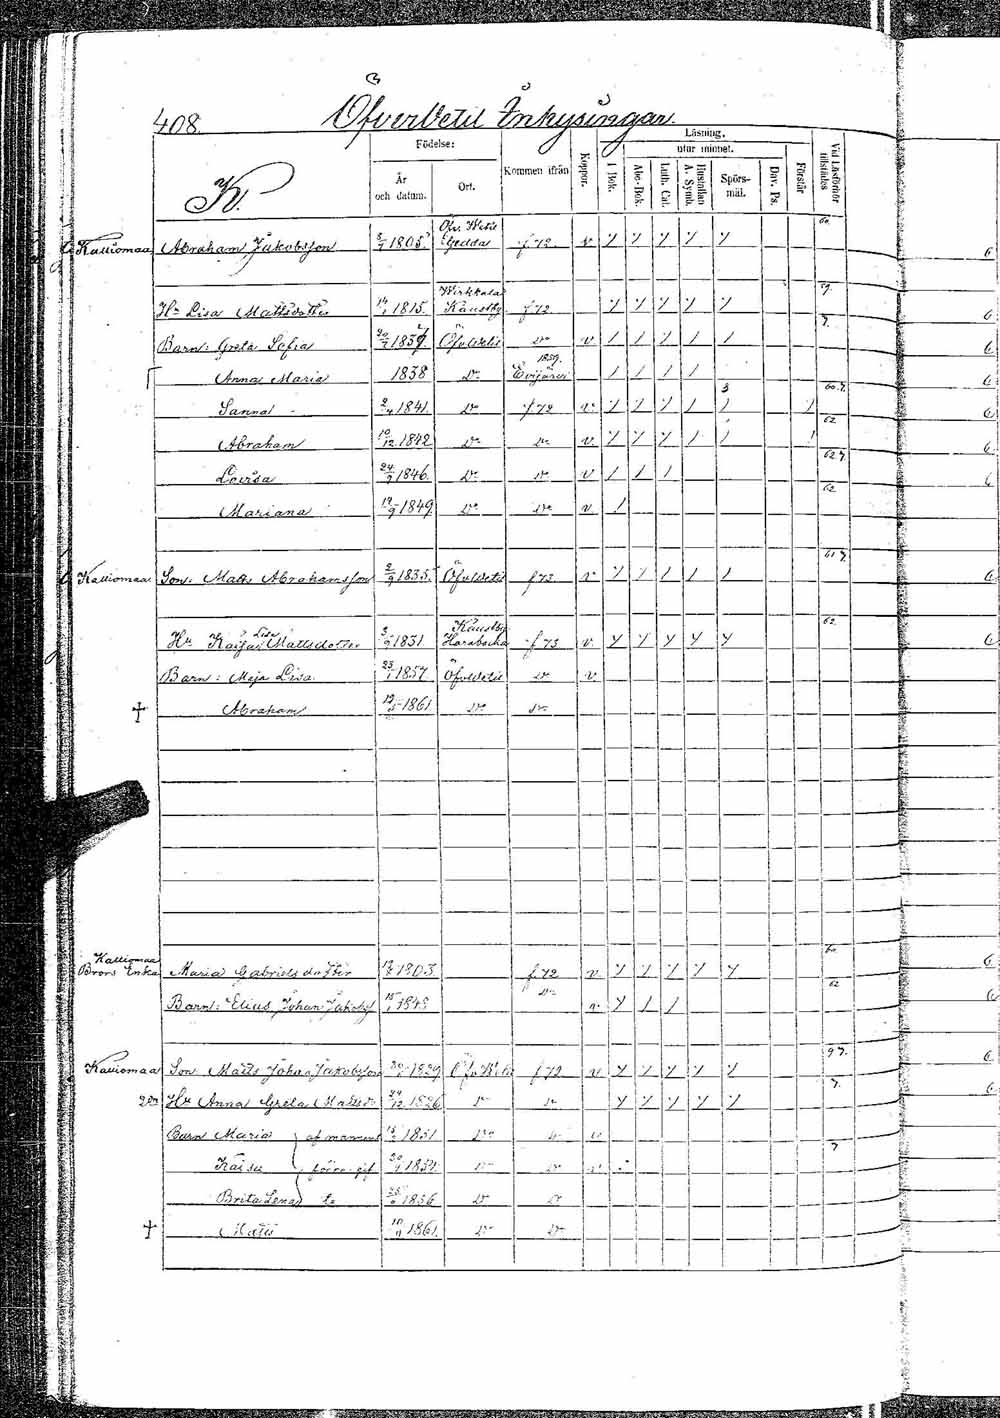 408. ÖfverVetil Inhysingar.
K.
Födelse:
År och datum.
Ort.
Kommen ifrån
Koppor.
Läsning,
I Bok.
utur minnet.
Abc-Bok.
Luth. Cat.
Hustaflan A. Symb.
Spörsmål.
Dav. Ps.
Förstår
Vid Läsförhör tillstädes
Kalliomaa Abraham Jakobsson 1805 Öfv. Wetil Gedda f 72 v 60.
Hu Lisa Mattsdotter 14/1 1815. Wirkkala Kaustby f 72
Barn: Greta Sofia 1837 Öfvwetil Do v
Anna Maria 1838 Do 1859. Evijärvi
Sanna 1841. Do f 72 v 3 60.
Abraham 10/12 1842 Do Do v 62
Lovisa 24/9 1846. Do Do v 62
Mariana 19/9 1849 Do Do v 62
Kalliomaa Son: Matts Abrahamsson 2/9 1835 Öfvwetil f 73 v 61
Hu Kaisa Lisa Mattsdotter 1831 Kaustby f 73 v 62
Barn: Maja Lisa 23/1 1857 Öfvwetil Do v
† Abraham 1861. Do Do
Kalliomaa Brors Enka Maria Gabrielsdotter 1803 f 72 v 60
Barn: Elias Johan Jakobss 1843 Do v 62
Kalliomaa Son Matts Johan Jakobsson 1829 Öfv Wetil f 72 v
2dra Hu Anna Greta Mattsd 24/12 1826 Do Do
Barn Maria 1851 Do Do v
Kaisa 1854 Do Do v
Brita Lena 1856 Do Do
† Matts 1861. Do Do